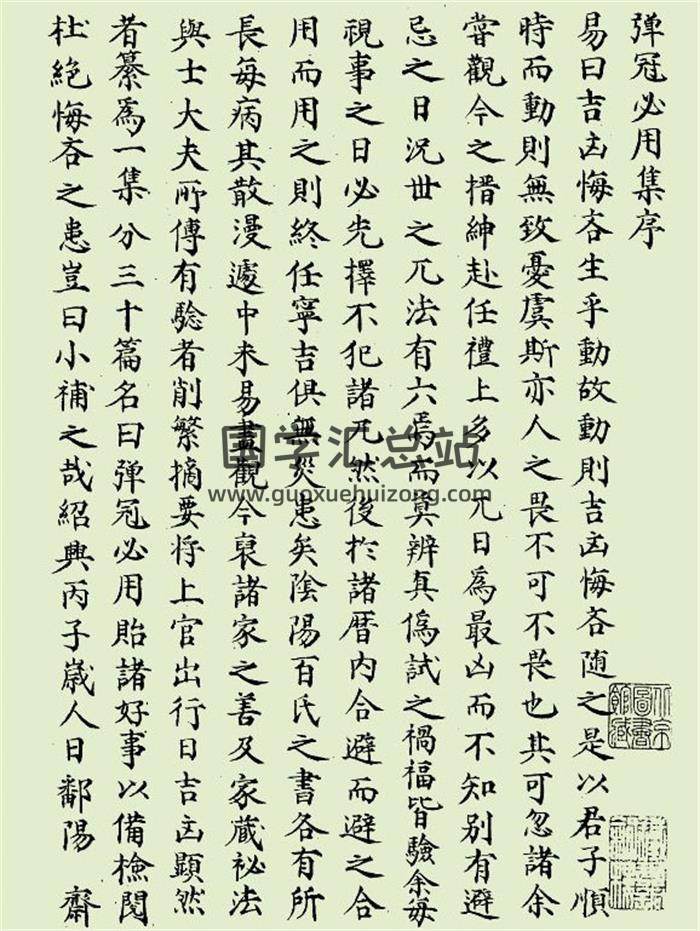 弹冠必用集序
易曰吉凶悔吝生乎動故動則吉凶悔吝随之是以君子順
時而動則無致憂虞斯亦人之畏不可不畏也其可忽諸余
甞觀今之搢紳赴任禮上多以兀日爲最凶而不知别有避
忌之日況世之兀法有六焉而莫辨真僞試之禍福皆驗余每
視事之日必先擇不犯諸兀然後於諸曆内合避而避之合
用而用之則終任寧吉俱無災患矣陰陽百氏之書各有所
長每病其散漫遽中未易盡觀今裒諸家之善及家藏祕法
與士大夫所傳有驗者削繁摘要將上官出行日吉凶顯然
者纂爲一集分三十篇名曰弹冠必用貽諸好事以備檢閲
杜絶悔吝之患豈曰小補之哉紹興丙子歲人日鄱陽 齋
北京圖書館藏
国学汇总站
www.guoxuehuizong.com